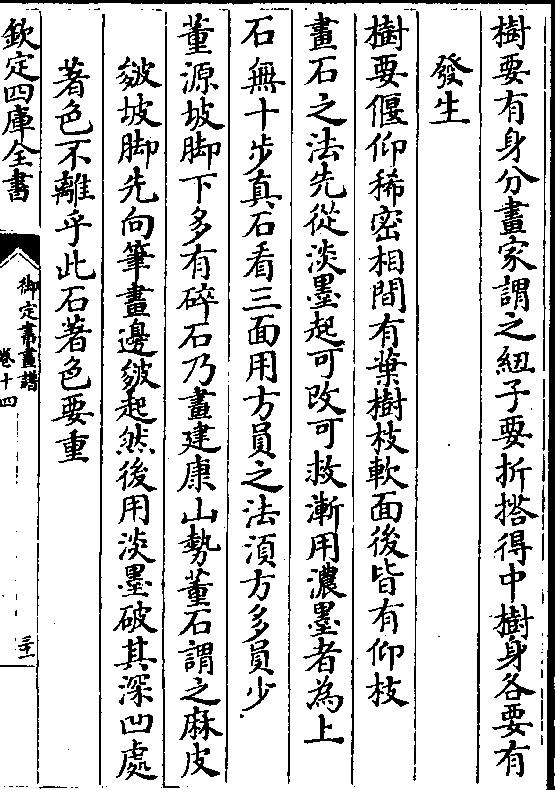 樹要有身分畫家謂之紐子要折搭得中樹身各要有
發生
樹要偃仰稀密相間有葉樹枝軟面後皆有仰枝
畫石之法先從淡墨起可改可救漸用濃墨者為上
石無十步真石看三面用方員之法湏方多員少
董源坡脚下多有碎石乃畫建康山勢董石謂之麻皮
皴坡脚先向筆畫邊皴起然後用淡墨破其深凹處
著色不離乎此石著色要重
欽定四庫全書
御定書畫譜
卷十四
三十一